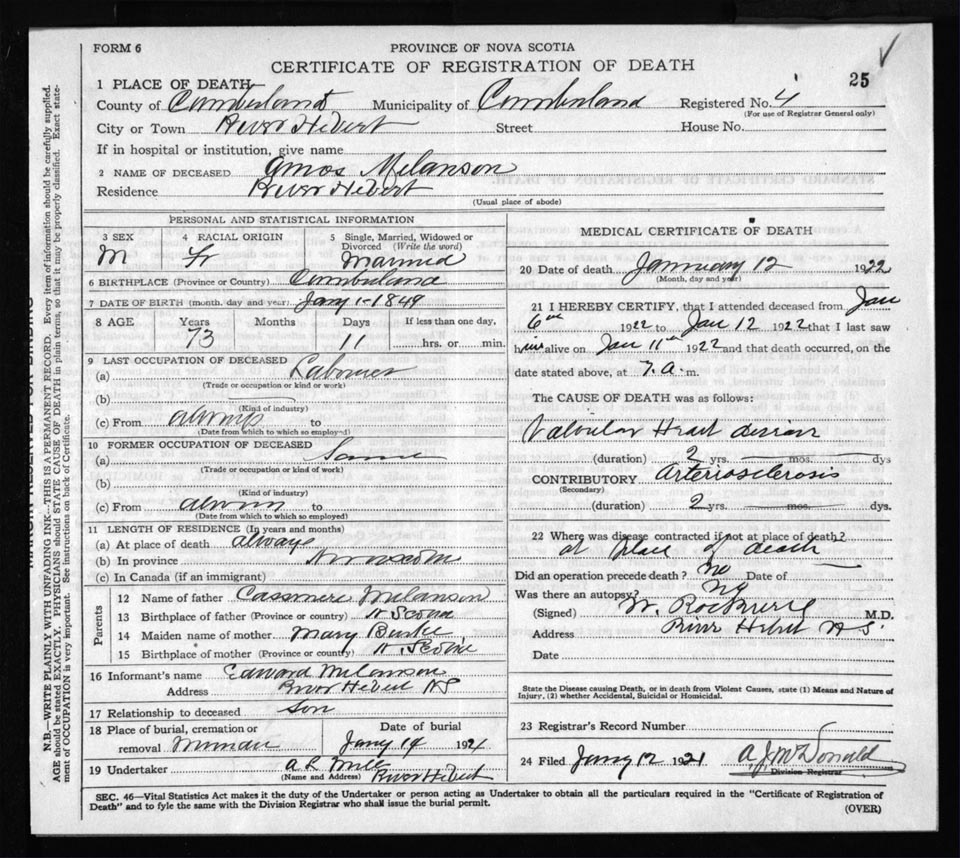 FORM 6
PROVINCE OF NOVA SCOTIA
CERTIFICATE OF REGISTRATION OF DEATH
25
1 PLACE OF DEATH
County of Cumberland Municipality of Cumberland Registered No. 4
(For use of Registrar General only)
City or Town River Hebert Street House No.
If in hospital or institution, give name
2 NAME OF DECEASED Amos Melanson
Residence River Hebert
(Usual place of abode)
PERSONAL AND STATISTICAL INFORMATION
3 SEX 4 RACIAL ORIGIN 5 Single, Married, Widowed or Divorced (Write the word)
M Fr Married
6 BIRTHPLACE (Province or Country) Cumberland
7 DATE OF BIRTH (month, day and year) Jany 1-1849
8 AGE Years Months Days If less than one day,
73 11 hrs. or min.
9 LAST OCCUPATION OF DECEASED
(a) Labourer
(Trade or occupation or kind of work)
(b)
(Kind of industry)
(c) From always to
(Date from which to which so employed)
10 FORMER OCCUPATION OF DECEASED
(a) Same
(Trade or occupation or kind of work)
(b)
(Kind of industry)
(c) From always to
(Date from which to which so employed)
11 LENGTH OF RESIDENCE (In years and months)
(a) At place of death always
(b) In province
(c) In Canada (if an immigrant)
Parents
12 Name of father Cassmere Melanson
13 Birthplace of father (Province or country) N Scotia
14 Maiden name of mother Mary Burke
15 Birthplace of mother (Province or country) N. Scotia
16 Informant's name Edward Melanson
Address River Hebert NS
17 Relationship to deceased Son
18 Place of burial, cremation or removal Minudie Date of burial
Jany 14 1921
19 Undertaker A R Mills
(Name and Address) River Hebert
MEDICAL CERTIFICATE OF DEATH
20 Date of death January 12 1922
(Month, day and year)
21 I HEREBY CERTIFY, that I attended deceased from Jan
6th 1922 to Jan 12 1922 that I last saw
him alive on Jan 11th 1922 and that death occurred, on the
date stated above, at 7. a. m.
The CAUSE OF DEATH was as follows:
Valvular Heart disease
(duration) 2 yrs. mos. dys
CONTRIBUTORY Arteriosclerosis
(Secondary)
(duration) 2 yrs. mos. dys.
22 Where was disease contracted if not at place of death?
at place of death
Did an operation precede death? No Date of
Was there an autopsy? No
(Signed) W. Rockwell M.D.
Address River Hebert N.S.
Date
State the Disease causing Death, or in death from Violent Causes, state (1) Means and Nature of
Injury, (2) whether Accidental, Suicidal or Homicidal.
23 Registrar's Record Number
24 Filed Jany 12 1921 A. J. McDonald
Division Registrar
SEC. 46—Vital Statistics Act makes it the duty of the Undertaker or person acting as Undertaker to obtain all the particulars required in the "Certificate of Registration of
Death" and to fyle the same with the Division Registrar who shall issue the burial permit.
(OVER)
MARGIN RESERVED FOR BINDING
N.B.—WRITE PLAINLY WITH UNFADING INK—THIS IS A PERMANENT RECORD. Every item of information should be carefully supplied.
AGE should be stated EXACTLY. PHYSICIANS should STATE CAUSE OF DEATH in plain terms, so that it may be properly classified. Exact state-
ment of OCCUPATION is very important. See instructions on back of Certificate.